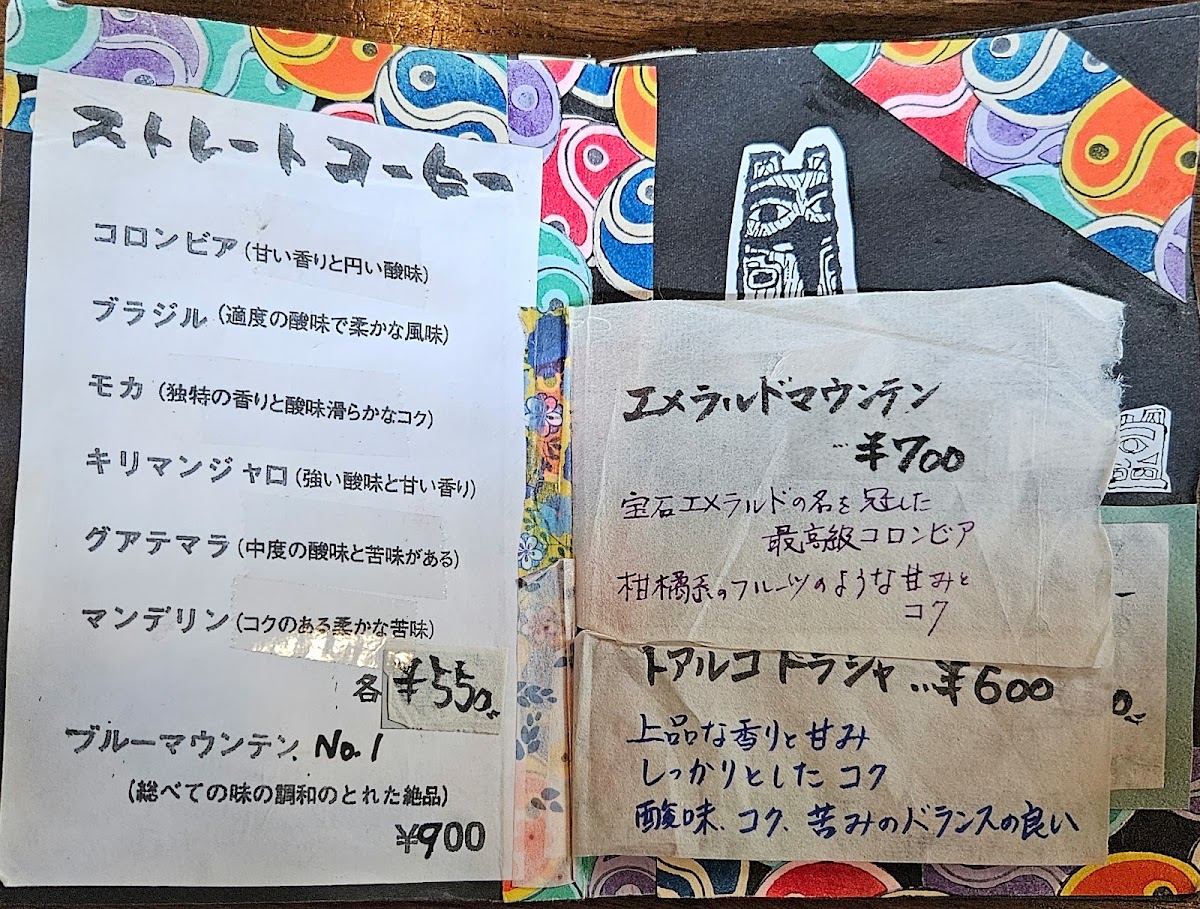 ストレートコーヒー
コロンビア (甘い香りと円い酸味)
ブラジル (適度の酸味で柔かな風味)
モカ (独特の香りと酸味滑らかなコク)
キリマンジャロ (強い酸味と甘い香り)
グアテマラ (中度の酸味と苦味がある)
マンデリン (コクのある柔かな苦味)
各 ¥550
ブルーマウンテン No.1
(総べての味の調和のとれた絶品)
¥900
エメラルドマウンテン
…¥700
宝石エメラルドの名を冠した
最高級コロンビア
柑橘系のフルーツのような甘みと
コク
トアルコ トラジャ …¥600
上品な香りと甘み
しっかりとした コク
酸味、コク、苦みのバランスの良い